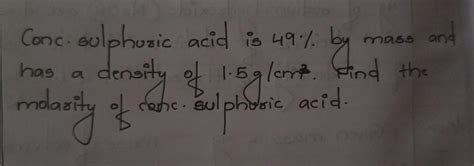 Conc. sulphuric acid is 49% by mass and
has a density of 1.5g/cm³. Find the
molarity of conc. sulphuric acid.